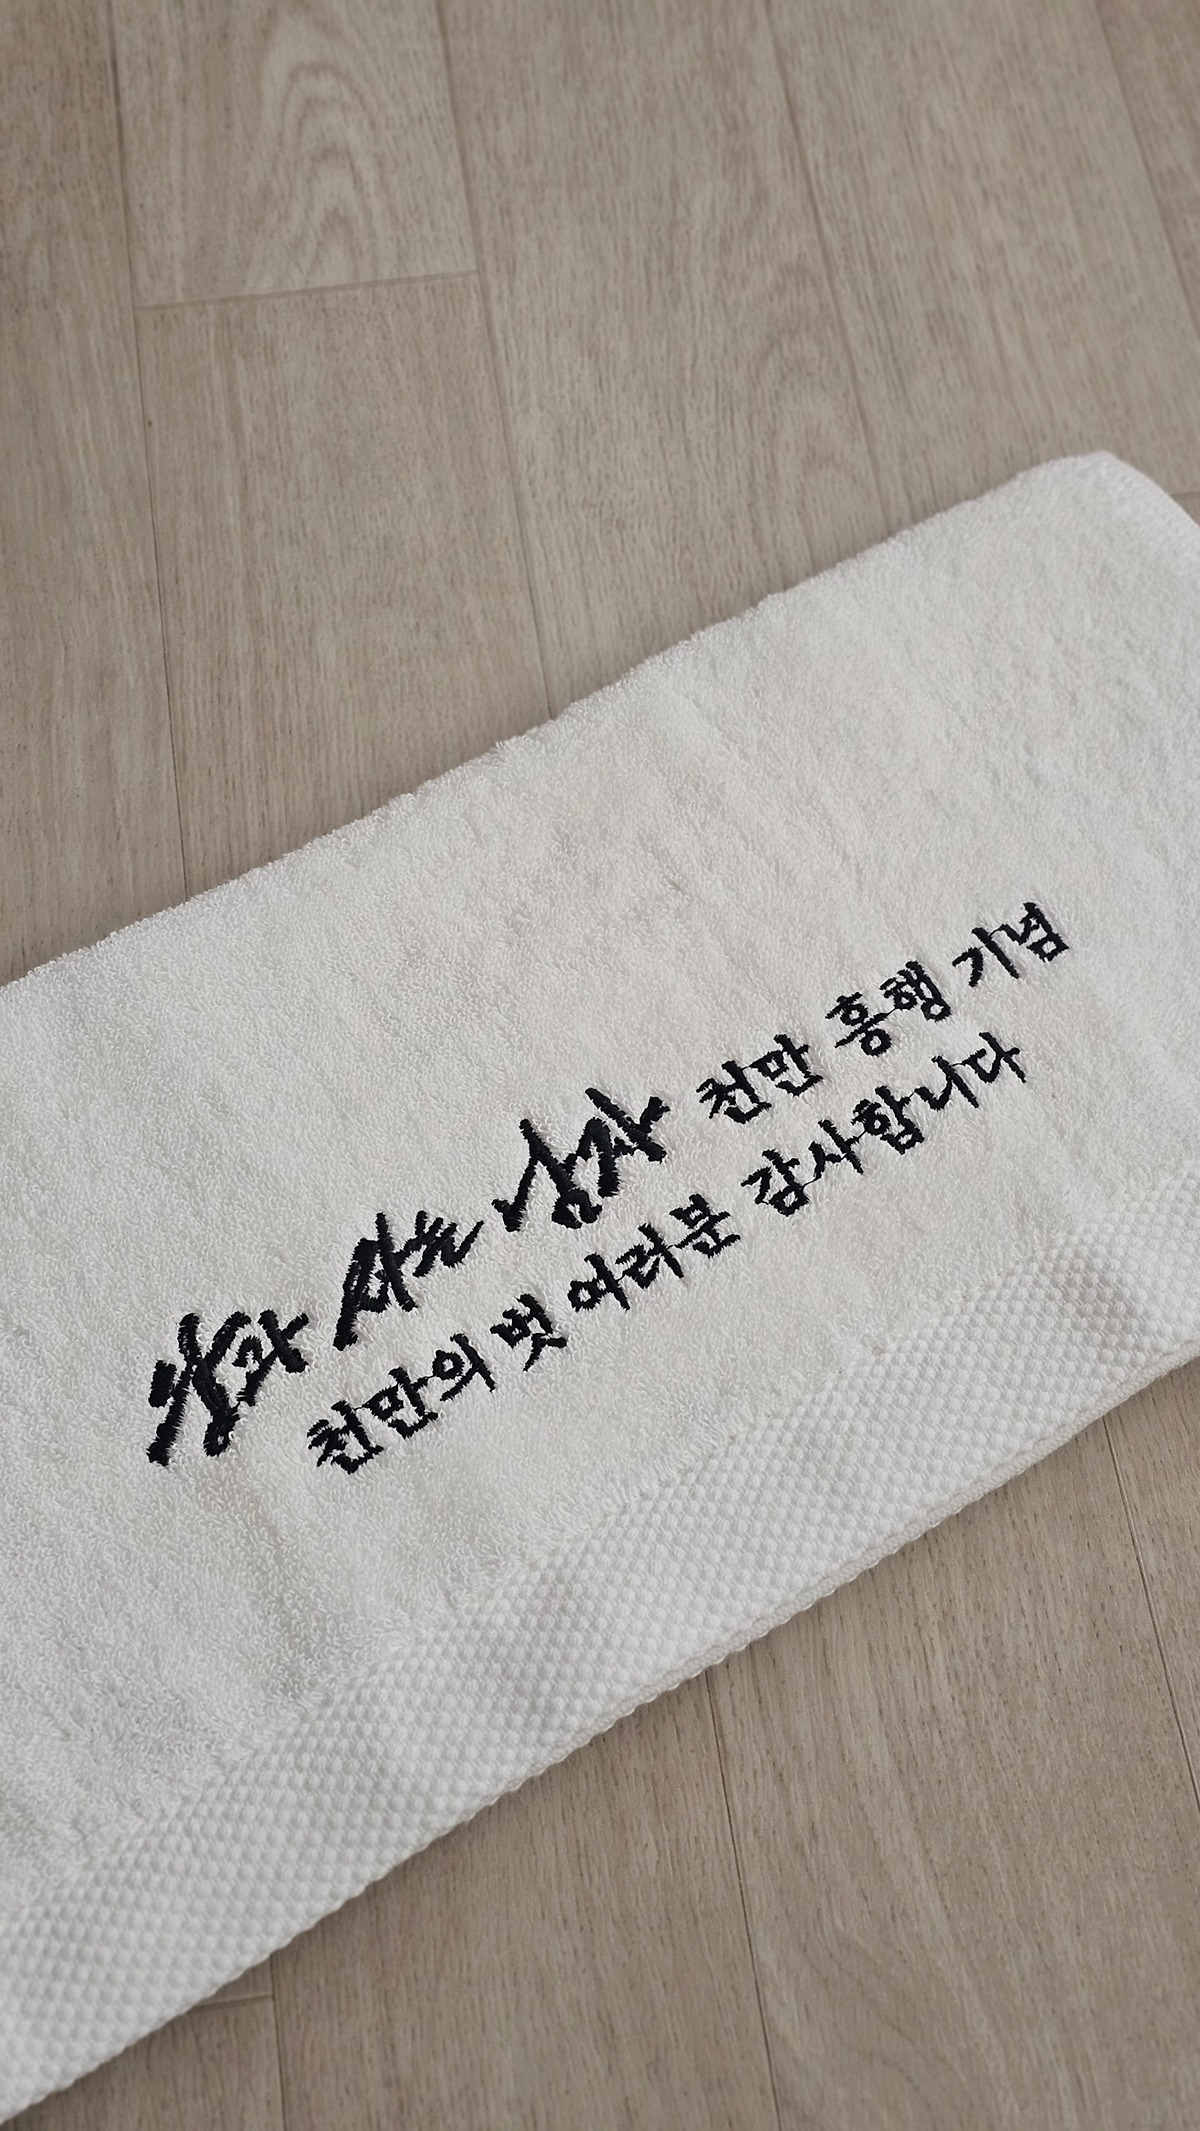 왕과 사는 남자 천만 흥행 기념
천만의 벗 여러분 감사합니다